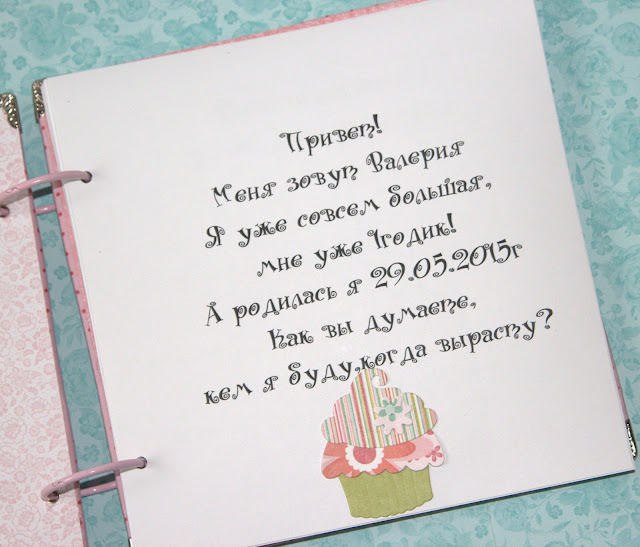 Привет!
Меня зовут Валерия
Я уже совсем большая,
мне уже 1годик!
А родилась я 29.05.2015г
Как вы думаете,
кем я буду,когда вырасту?